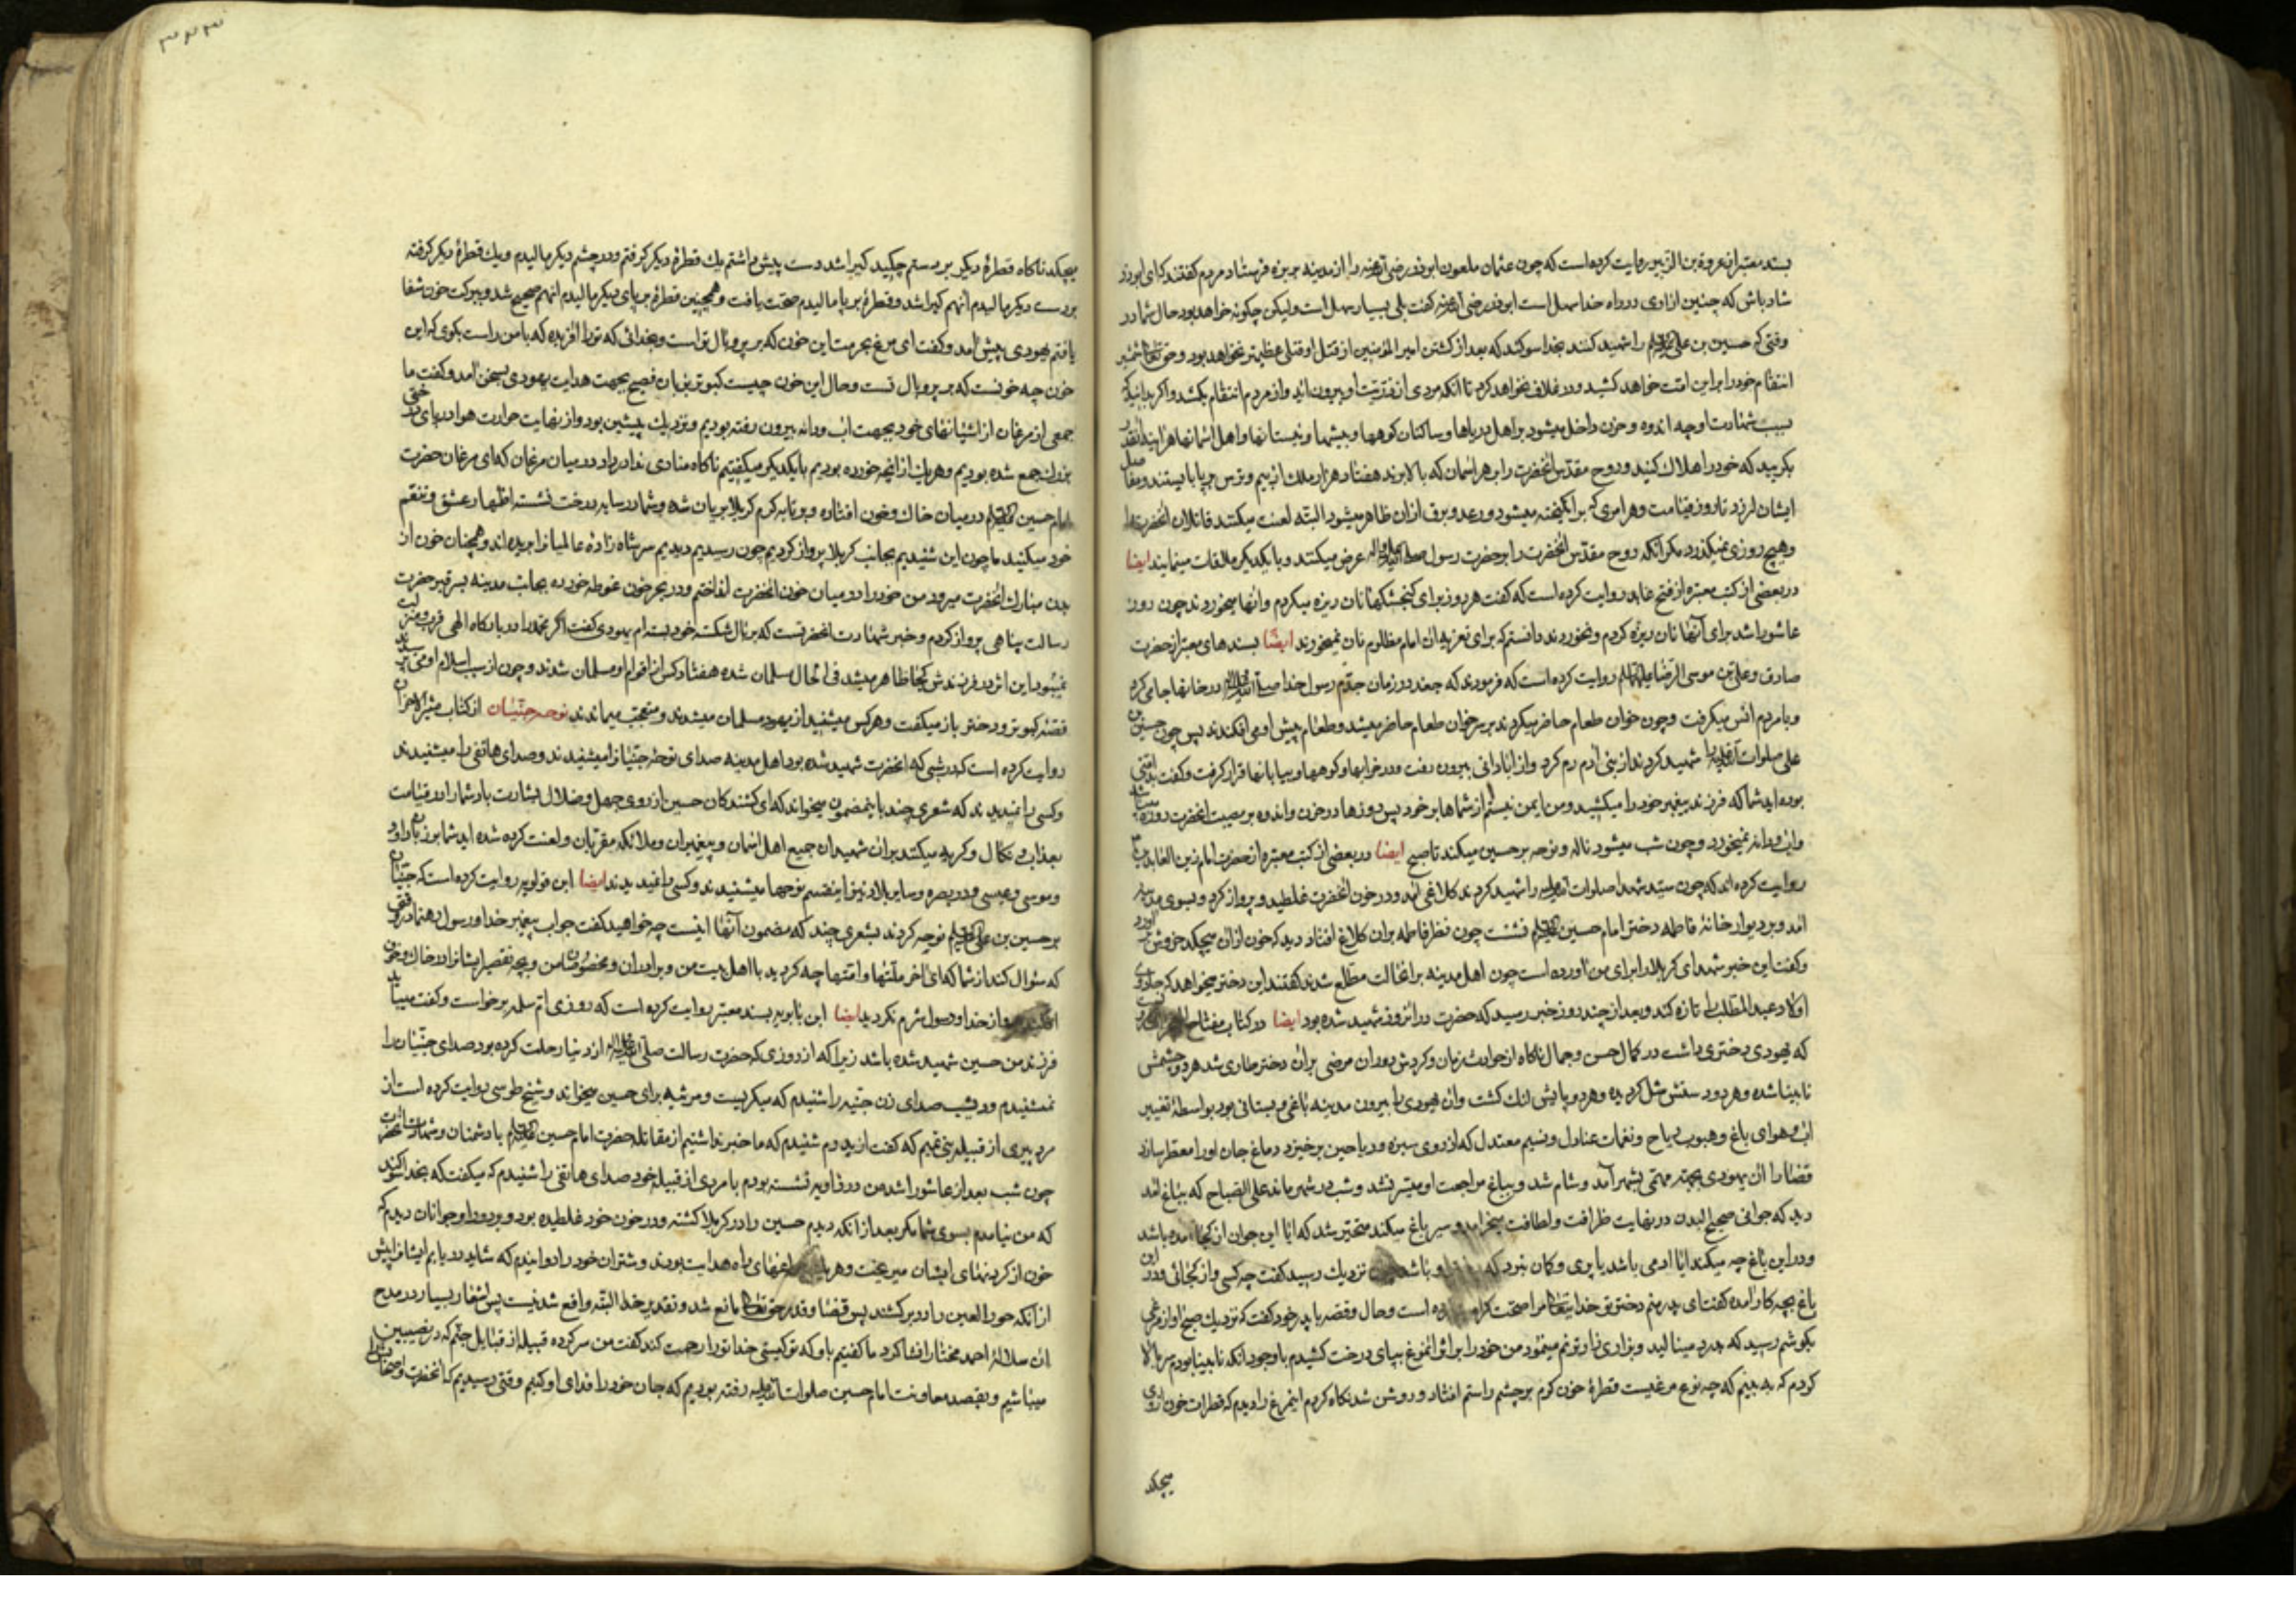 بسند معتبر از عروة بن الزبیر روایت کرده‌است که چون عثمان ملعون ابوذر رضی الله عنه را از مدینه بربزه فرستاد مردم کفتند که ای ابوذر
شاد باش که چنین ازاری در راه خدا سهل است ابوذر رضی الله عنه کفت بلی بسیار سهل است ولیکن چکونه خواهد بود حال شما در
وقتی که حسین بن علی را شهید کنند بخدا سوکند که بعد از کشتن امیر المؤمنین از قتل او قتلی عظیم‌تر نخواهد بود و حق تعالی شمشیر
انتقام خود را بر این امت خواهد کشید و در غلاف نخواهد کرد تا آنکه مردی از ذریت او بیرون اید و از مردم انتقام بکشد و اکر بدانید که
بسبب شهادت او چه اندوه و حزن داخل میشود بر اهل دریاها و ساکنان کوهها و بیشها و نیستانها و اهل اسمانها هر اینه انقدر
بکریید که خود را هلاک کنید و روح مقدس انحضرت را بر هر اسمان که بالا برند هفتاد هزار ملک از بیم و ترس بر پا بایستند و مفاصل
ایشان لرزد تا روز قیامت و هر ابری که برانکیخته میشود و رعد و برق از ان ظاهر میشود البته لعنت میکنند قاتلان انحضرت را
و هیچ روزی نمیکذرد مکر انکه روح مقدس انحضرت را بر حضرت رسول صلی الله علیه واله عرض میکنند و با یکدیکر ملاقات مینمایند ایضا
در بعضی از کتب معتبره از فتح عابد روایت کرده است که کفت هر روز برای کنجشکها نان ریزه میکردم و انها میخوردند چون روز
عاشورا شد برای آنها نان ریزه کردم و نخوردند دانستم که برای تعزیه ان امام مظلوم نان نمیخورند ایضًا بسندهای معتبر از حضرت
صادق و علی بن موسی الرضا علیهما السلام روایت کرده است که فرمودند که جغد در زمان جدم رسول خدا صلی الله علیه واله در خانها جا می کرد
و با مردم انس میکرفت و چون خوان طعام حاضر میکردند بر سر خوان طعام حاضر میشد و طعام پیش او می افکندند پس چون حسین بن
علی صلوات الله علیه را شهید کردند از بنی آدم رم کرد و از ابادانی بیرون رفت و در خرابها و کوهها و بیابانها قرار کرفت و کفت بد امتی
بوده اید شما که فرزند پیغمبر خود را میکشید و من ایمن نیستم از شماها بر خود پس روزها در حزن و اندوه بر مصیبت انحضرت روزه میباشد
و اب و دانه نمیخورد و چون شب میشود ناله و نوحه بر حسین میکند تا صبح ایضا در بعضی از کتب معتبره از حضرت امام زین العابدین
روایت کرده اند که چون سید شهدا صلوات الله علیه را شهید کردند کلاغی امد و در خون انحضرت غلطید و پرواز کرد و بسوی مدینه
امد و بر دیوار خانهٔ فاطمه دختر امام حسین علیه السلام نشست چون نظر فاطمه بران کلاغ افتاد دید که خون از ان میچکد خروش براورد
و کفت این خبر شهدای کربلا را برای من اورده است چون اهل مدینه بر انحالت مطلع شدند کفتند این دختر میخواهد که جادوی
اولاد عبد المطلب را تازه کند و بعد از چند روز خبر رسید که حضرت در انروز شهید شده بود ایضا در کتاب مفتاح
که یهودی دختری داشت در کمال حسن و جمال ناکاه از حوادث زمان و کردش دوران مرضی بران دختر طاری شد هر دو چشمش
نابینا شده و هر دو دستش شل کردیده و هر دو پایش لنک کشت و ان یهودی را بیرون مدینه باغی و بستانی بود بواسطهٔ تغییر
اب و هوای باغ و هبوب ریاح و نغمات عنادل و نسیم معتدل که از روی سبزه و ریاحین برخیزد دماغ جان او را معطر سازد
قضا را ان یهودی بجهته مهمی بشهر آمد و شام شد و بباغ مراجعت او میسر نشد و شب در شهر ماند علی الصباح که بباغ امد
دید که جوانی صحیح البدن در نهایت ظرافت و لطافت میخرامد و سیر باغ میکند متحیر شد که ایا این جوان از کجا امده باشد
و در این باغ چه میکند ایا ادمی باشد یا پری و کان نبرد که او باشد نزدیک رسید کفت چه کسی و از کجائی و در این
باغ بچه کار امده کفت ای پدر منم دختر تو خدایتعالی مرا صحت کرامت است و حال و قصه با پدر خود کفت که نزدیک صبح اواز مرغی
بکوشم رسید که بدرد مینالید و بزاری زار ترنم مینمود من خود را بر اثر انمرغ بپای درخت کشیدم با وجود انکه نابینا بودم سر بالا
کردم که به بینم که چه نوع مرغیست قطرهٔ خون کرم بر چشم راستم افتاد و روشن شد نکاه کردم انمرغ را دیدم که قطرات خون از وی
میچکد
۳۲۳
میچکد ناکاه قطرهٔ دیکر بر دستم چکید کیرا شد دست پیش داشتم یک قطرهٔ دیکر کرفتم و در چشم دیکر مالیدم و یک قطرهٔ دیکر کرفته
بر دست دیکر مالیدم انهم کیرا شد و قطرهٔ بر پا مالیدم صحت یافت و همچنین قطرهٔ بر پای دیکر مالیدم انهم صحیح شد و ببرکت خون شفا
یافتم یهودی پیش امد و کفت ای مرغ بحرمت این خون که بر پر و بال تو است و بخدائی که تو را افریده که با من راست بکوی که این
خون چه خونست که بر پر و بال تست و حال این خون چیست کبوتر بزبان فصیح بجهت هدایت یهودی بسخن امد و کفت ما
جمعی از مرغان از اشیانهای خود بجهت اب و دانه بیرون رفته بودیم و نزدیک پیشین بود و از نهایت حرارت هوا در پای درختی
بزرک جمع شده بودیم و هر یک از انچه خورده بودیم با یکدیکر میکفتیم ناکاه منادی ندا در داد در میان مرغان که ای مرغان حضرت
امام حسین علیه السلام در میان خاک و خون افتاده و بر تابه کرم کربلا بریان شده و شما در سایه درخت نشسته اظهار عشق و تنعم
خود میکنید ما چون این شنیدیم بجانب کربلا پرواز کردیم چون رسیدیم دیدیم سر شاه زادهٔ عالمیانرا بریده اند و همچنان خون از
بدن مبارک انحضرت میرود من خود را در میان خون انحضرت انداختم و در بحر خون غوطه خورده بجانب مدینه بسر قبر حضرت
رسالت پناهی پرواز کردم و خبر شهادت انحضرتست که بر بال شکسته خود بسته ام یهودی کفت اکر محمد را در بارکاه الهی قرب و منزلت
نمیبود این اثر در فرزندش کجا ظاهر میشد فی الحال مسلمان شده هفتاد کس از اقوام او مسلمان شدند و چون از سبب اسلام او می پرسیدند
قصهٔ کبوتر و دختر باز میکفت و هرکس میشنید از یهود مسلمان میشدند و متعجب میماندند نوحه جنّیان از کتاب مثیر الاحزان
روایت کرده است که در شبی که انحضرت شهید شده بود اهل مدینه صدای نوحهٔ جنیانرا میشنیدند و صدای هاتفی را میشنیدند
و کسی را نمیدیدند که شعری چند باینمضمون میخواند که ای کشندکان حسین از روی جهل و ضلال بشارت باد شما را در قیامت
بعذاب و نکال و کریه میکنند بران شهیدان جمیع اهل اسمان و پیغمبران و ملائکه مقربان و لعنت کرده شده اید شما بر زبان داود
و موسی و عیسی و در بصره و سایر بلاد نیز از اینقسم نوحها میشنیدند و کسی را نمیدیدند ایضا ابن قولویه روایت کرده است که جنیان
بر حسین بن علی علیه السلام نوحه کردند بشعری چند که مضمون آنها اینست چه خواهید کفت جواب پیغمبر خدا و رسول رهنما در وقتی
که سؤال کند از شما که ای اخر ملتها و امتها چه کردید با اهل بیت من و برادران و مخصوصان من و بچه تقصیر ایشانرا در خاک و خون
از خدا و رسول شرم نکردید ایضا ابن بابویه بسند معتبر روایت کرده است که روزی ام سلمه برخواست و کفت میباید
فرزند من حسین شهید شده باشد زیرا که از روزی که حضرت رسالت صلی الله علیه واله از دنیا رحلت کرده بود صدای جنیان را
نمیشنیدم و دیشب صدای زن جنیه را شنیدم که میکریست و مرثیه برای حسین میخواند و شیخ طوسی روایت کرده است از
مرد پیری از قبیله بنی تمیم که کفت از پدرم شنیدم که ما خبر نداشتیم از مقاتله حضرت امام حسین علیه السلام با دشمنان و شهادت انحضرت
چون شب بعد از عاشورا شد من در زاویه نشسته بودم با مردی از قبیله خود صدای هاتفی را شنیدم که میکفت که بخدا سوکند
که من نیامدم بسوی شما مکر بعد از انکه دیدم حسین را در کربلا کشته و در خون خود غلطیده بود و بر دور او جوانان دیدم که
خون از کردنهای ایشان میریخت و هر یک چراغهای راه هدایت بودند و شتران خود را دوانیدم که شاید دریابم ایشانرا پیش
از آنکه حور العین را در بر کشند پس قضا و قدر حق تعالی مانع شد و تقدیر خدا البته واقع شدنیست پس اشعار بسیار در مدح
ان سلالهٔ احمد مختار انشا کرد ما کفتیم باو که تو کیستی خدا تو را رحمت کند کفت من سرکرده قبیله از قبایل جنّم که در نصیبین
میباشیم و بقصد معاونت امام حسین صلوات الله علیه رفته بودیم که جان خود را فدای او کنیم وقتی رسیدیم که انحضرت و اصحابش را